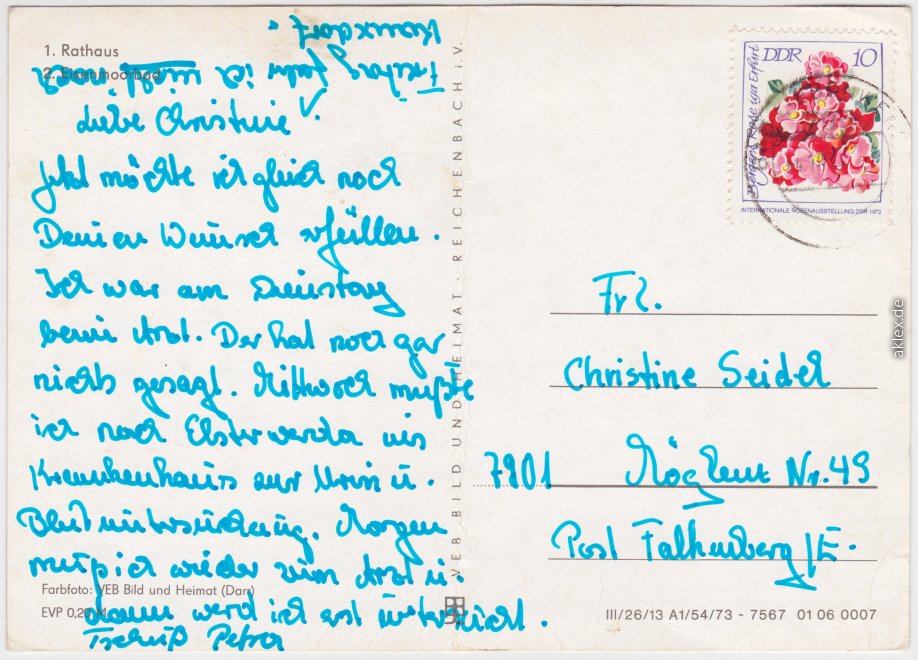 1. Rathaus
2. Eisenmoorbad
Liebe Christine!
Jetzt möchte ich gleich noch
Deinen Wunsch erfüllen.
Ich war am Dienstag
beim Arzt. Der hat noch gar
nichts gesagt. Mittwoch mußte
ich nach Elsterwerda ins
Krankenhaus zur Urin u.
Blutuntersuchung. Morgen
muß ich wieder zum Arzt u.
dann werd ich erst untersucht.
Tschüß Petra
Freitag fahr ich nach
Farbfoto: VEB Bild und Heimat (Darr)
EVP 0,20 M
VEB BILD UND HEIMAT · REICHENBACH i. V.
DDR 10
Berger's Rose iga Erfurt
INTERNATIONALE ROSENAUSSTELLUNG DDR 1972
Frl.
Christine Seidel
7901 Nr. 49
Post Falkenberg/E.
III/26/13 A1/54/73 - 7567 01 06 0007
aklex.de